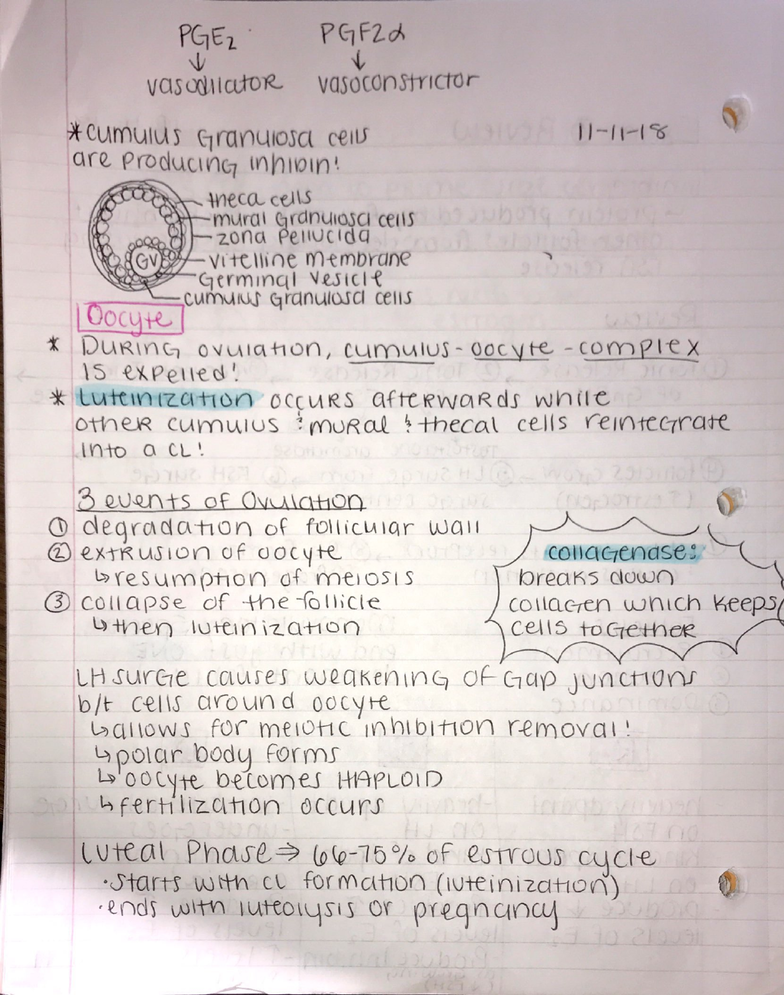 PGE2 PGF2α
↓ ↓
vasodilator vasoconstrictor
*cumulus Granulosa cells 11-11-18
are producing inhibin!
theca cells
mural Granulosa cells
zona pellucida
GV vitelline membrane
Germinal vesicle
cumulus Granulosa cells
Oocyte
* During ovulation, cumulus-oocyte-complex
is expelled!
* Luteinization occurs afterwards while
other cumulus & mural & thecal cells reintegrate
into a CL!
3 events of Ovulation
① degradation of follicular wall
② extrusion of oocyte
↳resumption of meiosis
③ collapse of the follicle
↳then luteinization
collagenase:
breaks down
collagen which keeps
cells together
LH surge causes weakening of Gap junctions
b/t cells around oocyte
↳allows for meiotic inhibition removal!
↳polar body forms
↳oocyte becomes HAPLOID
↳fertilization occurs
Luteal Phase ⇒ 66-75% of estrous cycle
·starts with CL formation (luteinization)
·ends with luteolysis or pregnancy